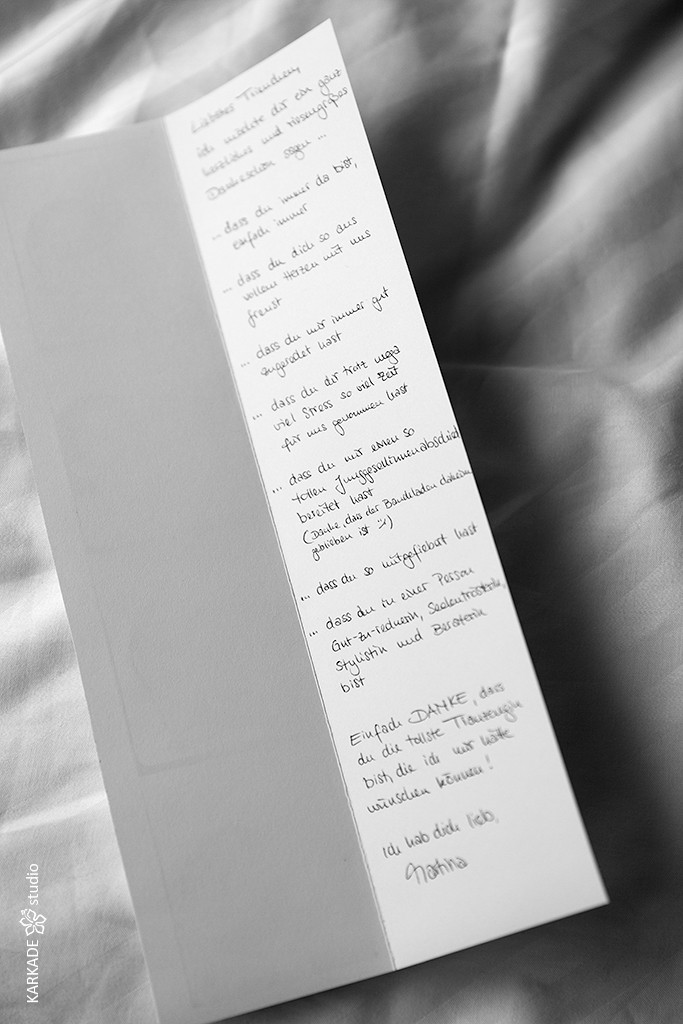 Liebstes Trinchen,
ich möchte dir ein ganz
herzliches und riesengroßes
Dankeschön sagen ...
... dass du immer da bist,
einfach immer
... dass du dich so aus
vollem Herzen mit uns
freust
... dass du mir immer gut
zugeredet hast
... dass du dir trotz mega
viel Stress so viel Zeit
für uns genommen hast
... dass du mir einen so
tollen Junggesellinnenabschied
bereitet hast
(Danke, dass der Bauchladen daheim
geblieben ist :-))
... dass du so mitgefiebert hast
... dass du in einer Person
Gut-zu-rednerin, Seelentrösterin,
Stylistin und Beraterin
bist
Einfach DANKE, dass
du die tollste Trauzeugin
bist, die ich mir hätte
wünschen können!
Ich hab dich lieb,
KARKADE studio